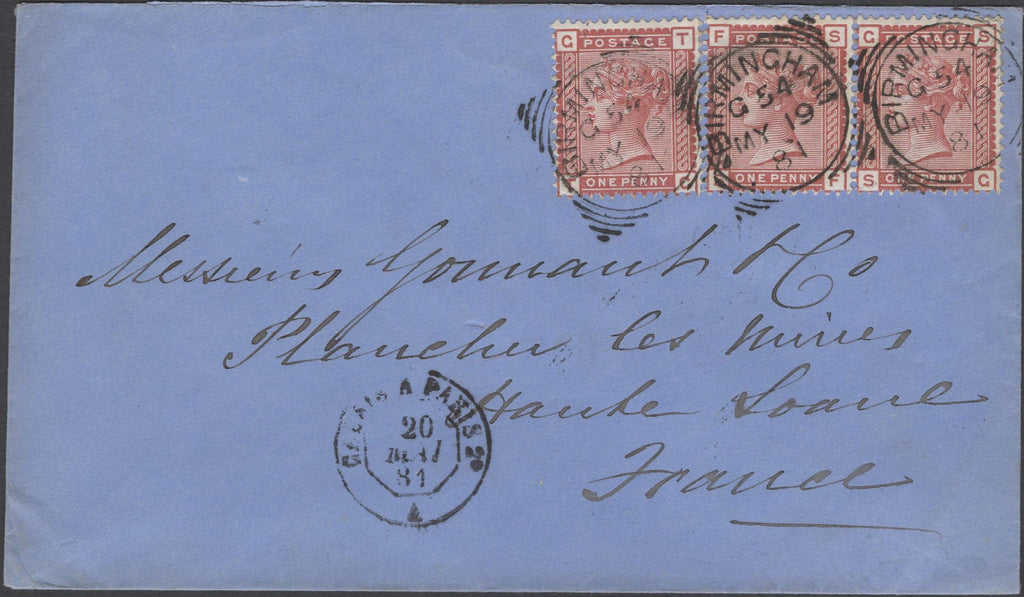 G POSTAGE T
ONE PENNY
F POSTAGE S
ONE PENNY F
G POSTAGE S
S ONE PENNY G
BIRMINGHAM
G 54
MY 19
81
BIRMINGHAM
G 54
MY 19
81
BIRMINGHAM
G 54
MY 19
81
Messieurs Gonnant & Co
Plancher les Mines
Haute Soane
France
CALAIS A PARIS 2°
20
MAI
81
A